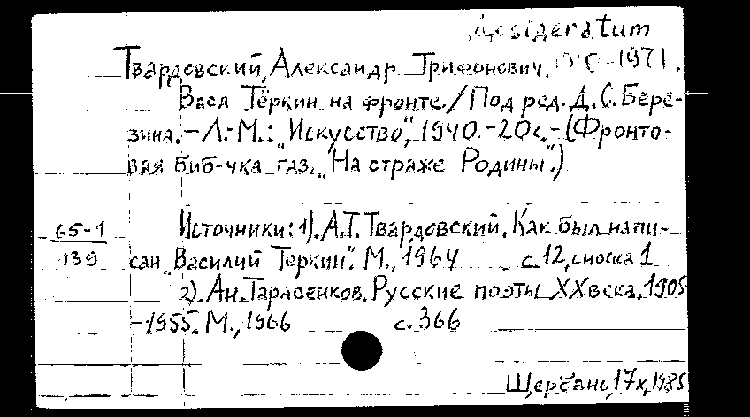 Desideratum
Твардовский, Александр Трифонович, 1910-1971.
Вася Тёркин на фронте. / Под ред. Д. С. Бере-
зина. - Л.-М.: "Искусство", 1940. - 20 с. - (Фронто-
вая биб-чка газ. "На страже Родины".)
65-1 Источники: 1). А.Т. Твардовский. Как был напи-
139 сан "Василий Теркин". М., 1964 с. 12, сноска 1
2). Ан. Тарасенков. Русские поэты XX века. 1905
-1955. М., 1966 с. 366
Щербань, 17.X.1985